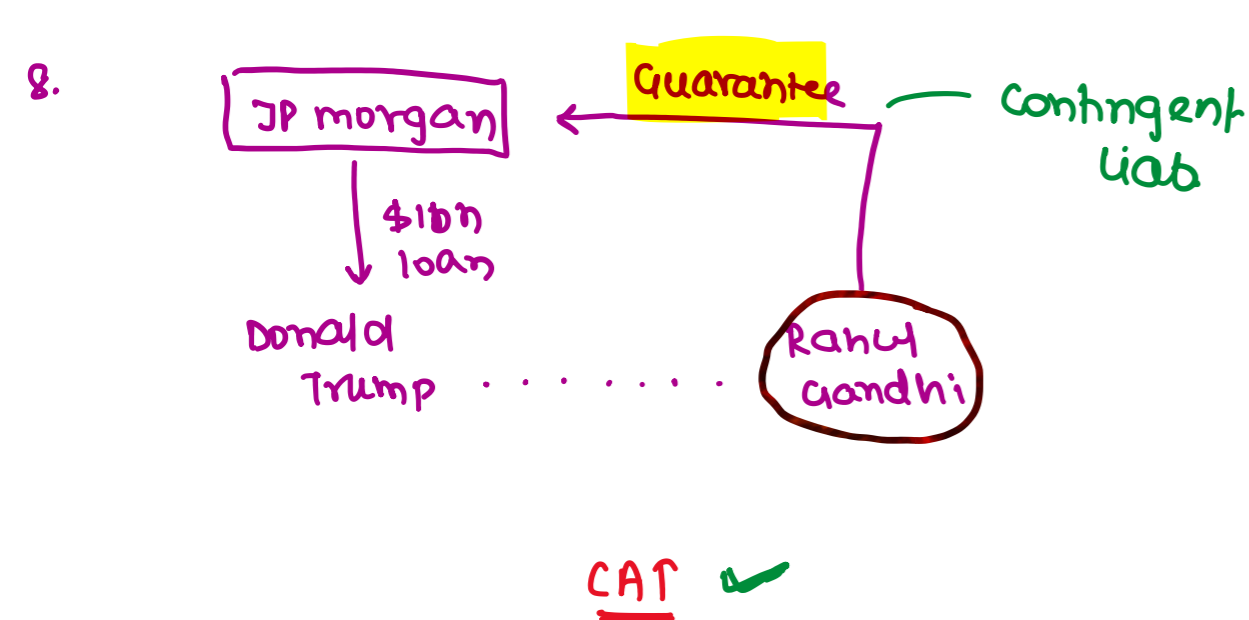 8.
JP morgan
Guarantee
Contingent
Liab
$1bn
loan
Donald
Trump . . . . . .
Rahul
Gandhi
CAT